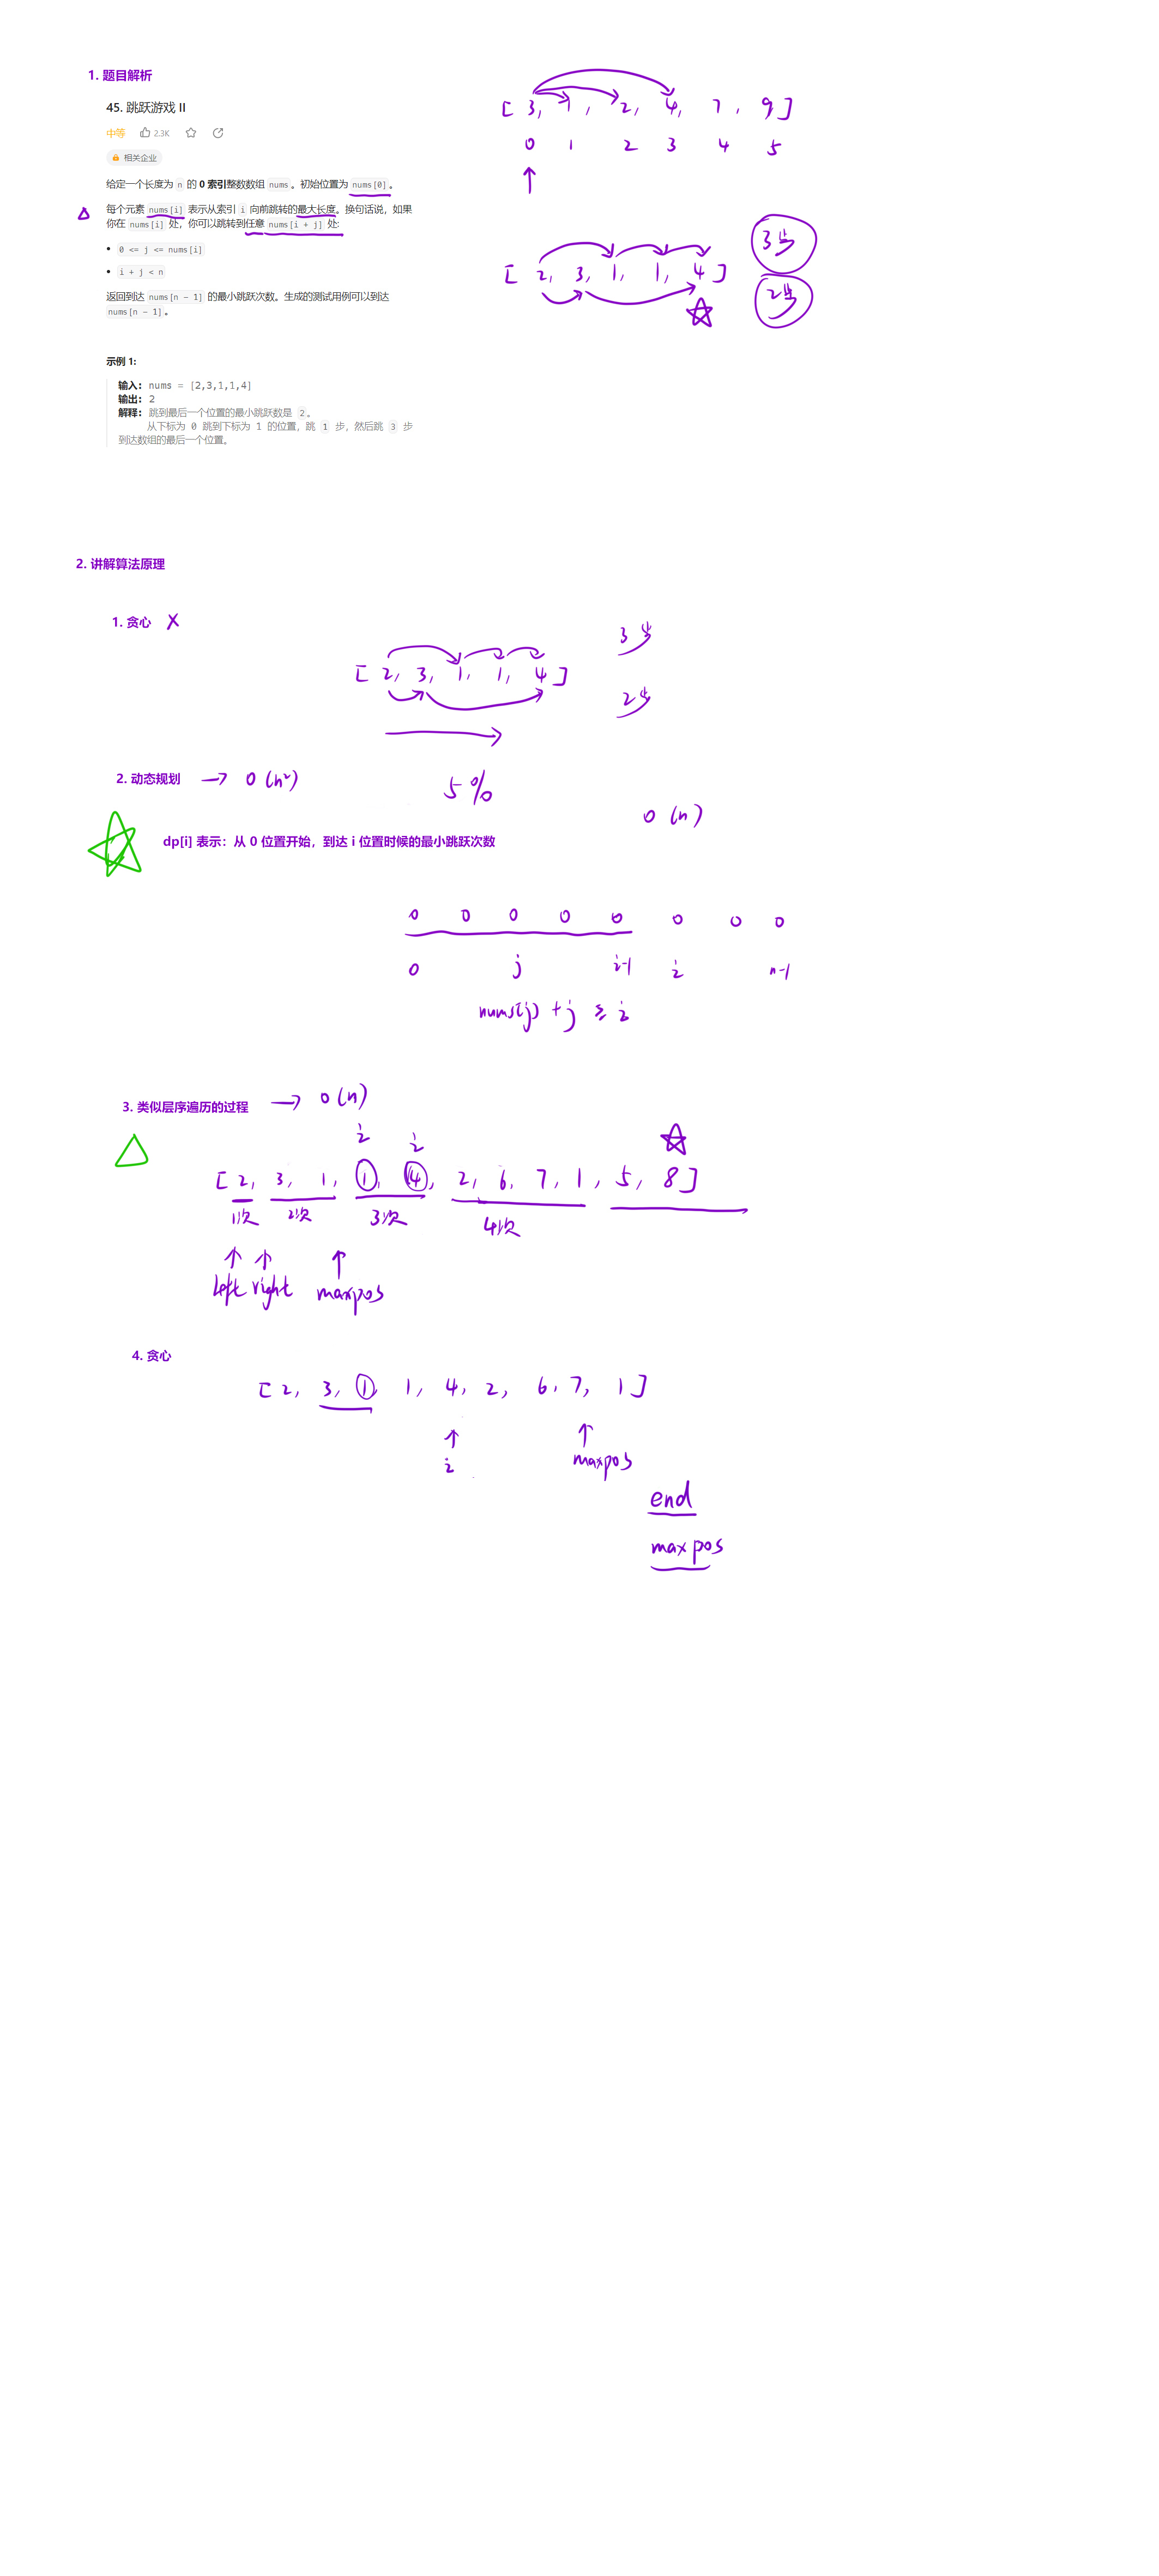 1. 题目解析
45. 跳跃游戏 II
中等 2.3K
相关企业
给定一个长度为 n 的 0 索引整数数组 nums。初始位置为 nums[0]。
每个元素 nums[i] 表示从索引 i 向前跳转的最大长度。换句话说，如果
你在 nums[i] 处，你可以跳转到任意 nums[i + j] 处:
• 0 <= j <= nums[i]
• i + j < n
返回到达 nums[n - 1] 的最小跳跃次数。生成的测试用例可以到达
nums[n - 1]。
示例 1:
输入: nums = [2,3,1,1,4]
输出: 2
解释: 跳到最后一个位置的最小跳跃数是 2。
从下标为 0 跳到下标为 1 的位置，跳 1 步，然后跳 3 步
到达数组的最后一个位置。
[ 3, 1, 2, 4, 7, 9 ]
0 1 2 3 4 5
[ 2, 3, 1, 1, 4 ]
3步
2步
2. 讲解算法原理
1. 贪心 X
[ 2, 3, 1, 1, 4 ]
3步
2步
2. 动态规划 → O(n²)
5%
O(n)
dp[i] 表示：从 0 位置开始，到达 i 位置时候的最小跳跃次数
0 0 0 0 0 0 0 0
0 j i-1 i n-1
nums[j] + j ≥ i
3. 类似层序遍历的过程 → O(n)
i i
[ 2, 3, 1, 1, 4, 2, 6, 7, 1, 5, 8 ]
1次 2次 3次 4次
left right maxpos
4. 贪心
[ 2, 3, 1, 1, 4, 2, 6, 7, 1 ]
i maxpos
end
maxpos